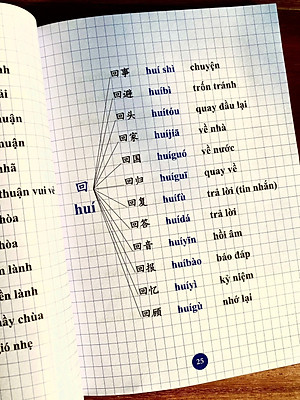 nh
ải
uận
huận
nhã
thuận vui vẻ
hòa
hòa
n lành
ền lành
hầy chùa
gió nhẹ
回
huí
回事 huí shì chuyện
回避 huíbì trốn tránh
回头 huítóu quay đầu lại
回家 huíjiā về nhà
回国 huíguó về nước
回归 huíguī quay về
回复 huífù trả lời (tin nhắn)
回答 huídá trả lời
回音 huíyīn hồi âm
回报 huíbào báo đáp
回忆 huíyì kỷ niệm
回顾 huígù nhớ lại
25